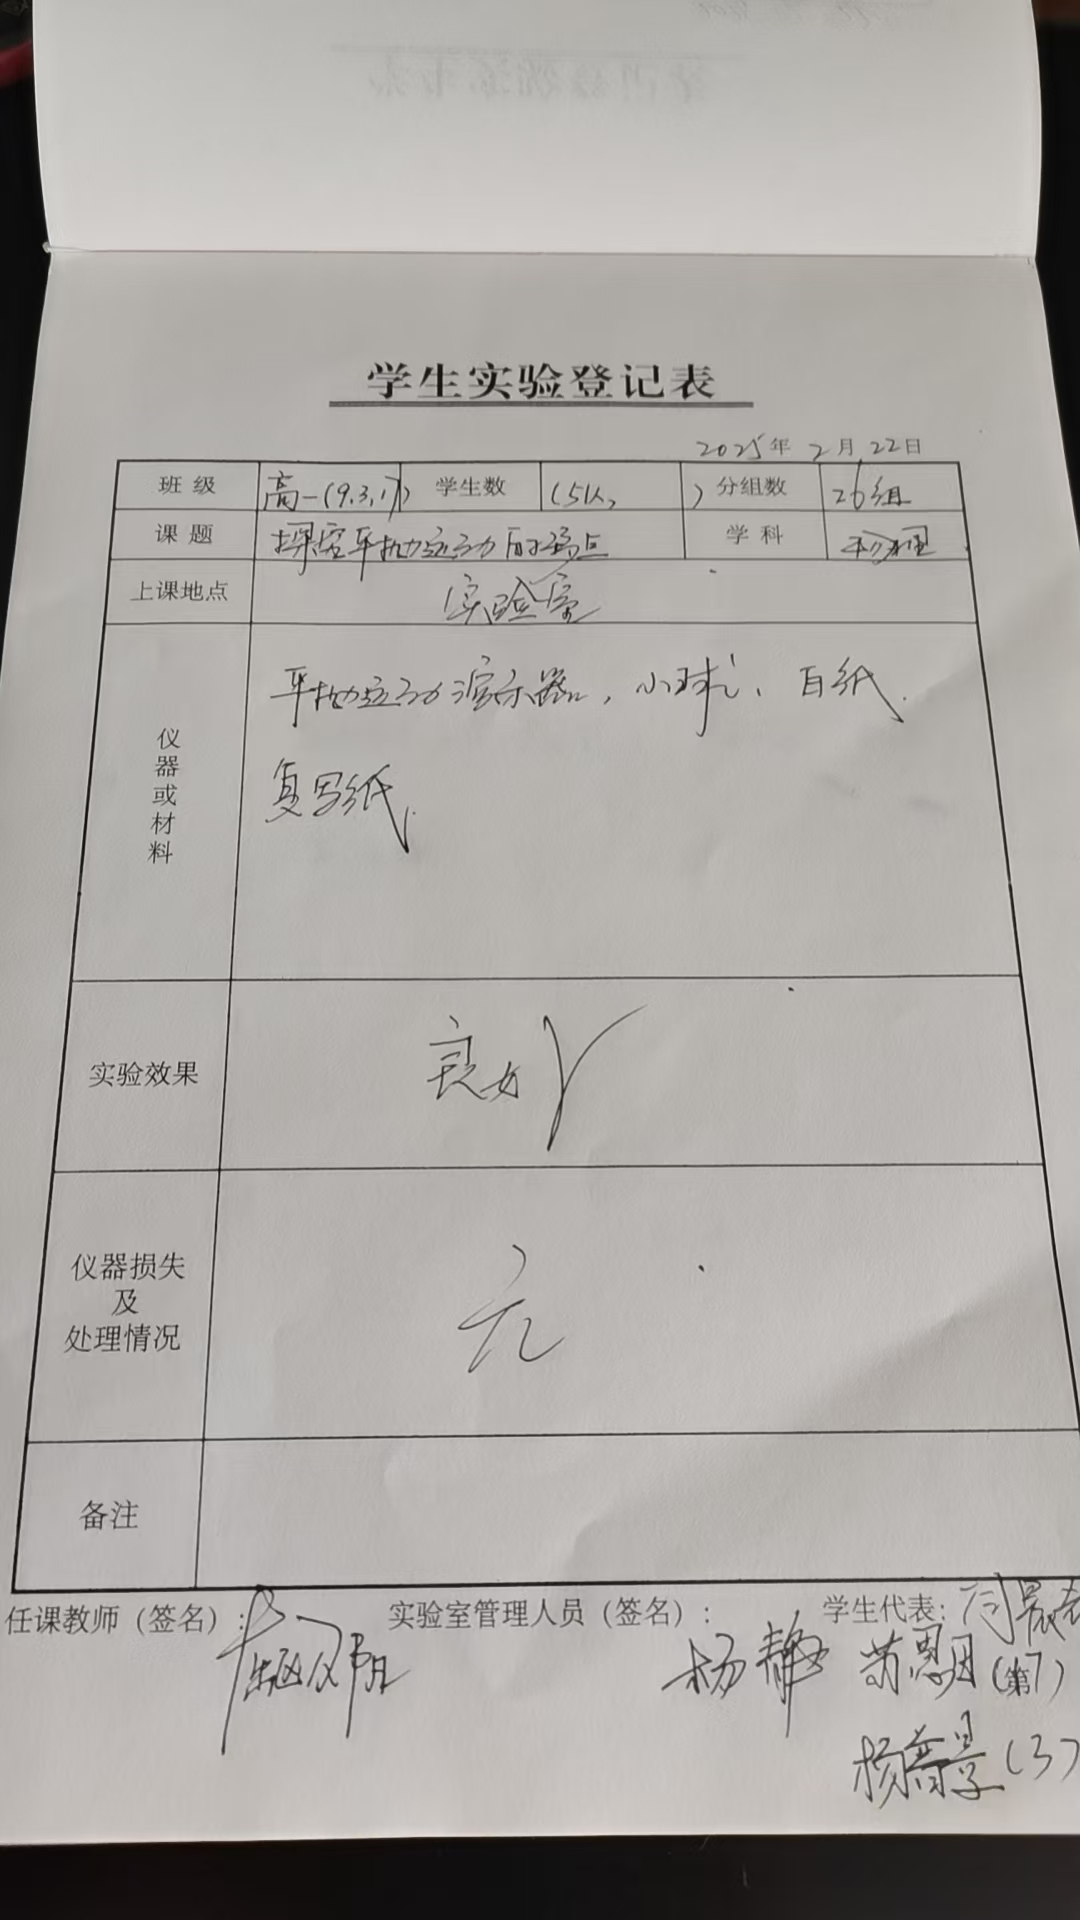 学生实验登记表
2025年2月22日
班级 高一(9.3.17) 学生数 (51人) 分组数 26组
课题 探究平抛运动的特点 学科 物理
上课地点 实验室
仪器或材料 平抛运动演示器，小球、白纸.
复写纸.
实验效果 良好
仪器损失及处理情况 无
备注
任课教师（签名）: 实验室管理人员（签名）: 学生代表:
杨静 (第17)
(3)